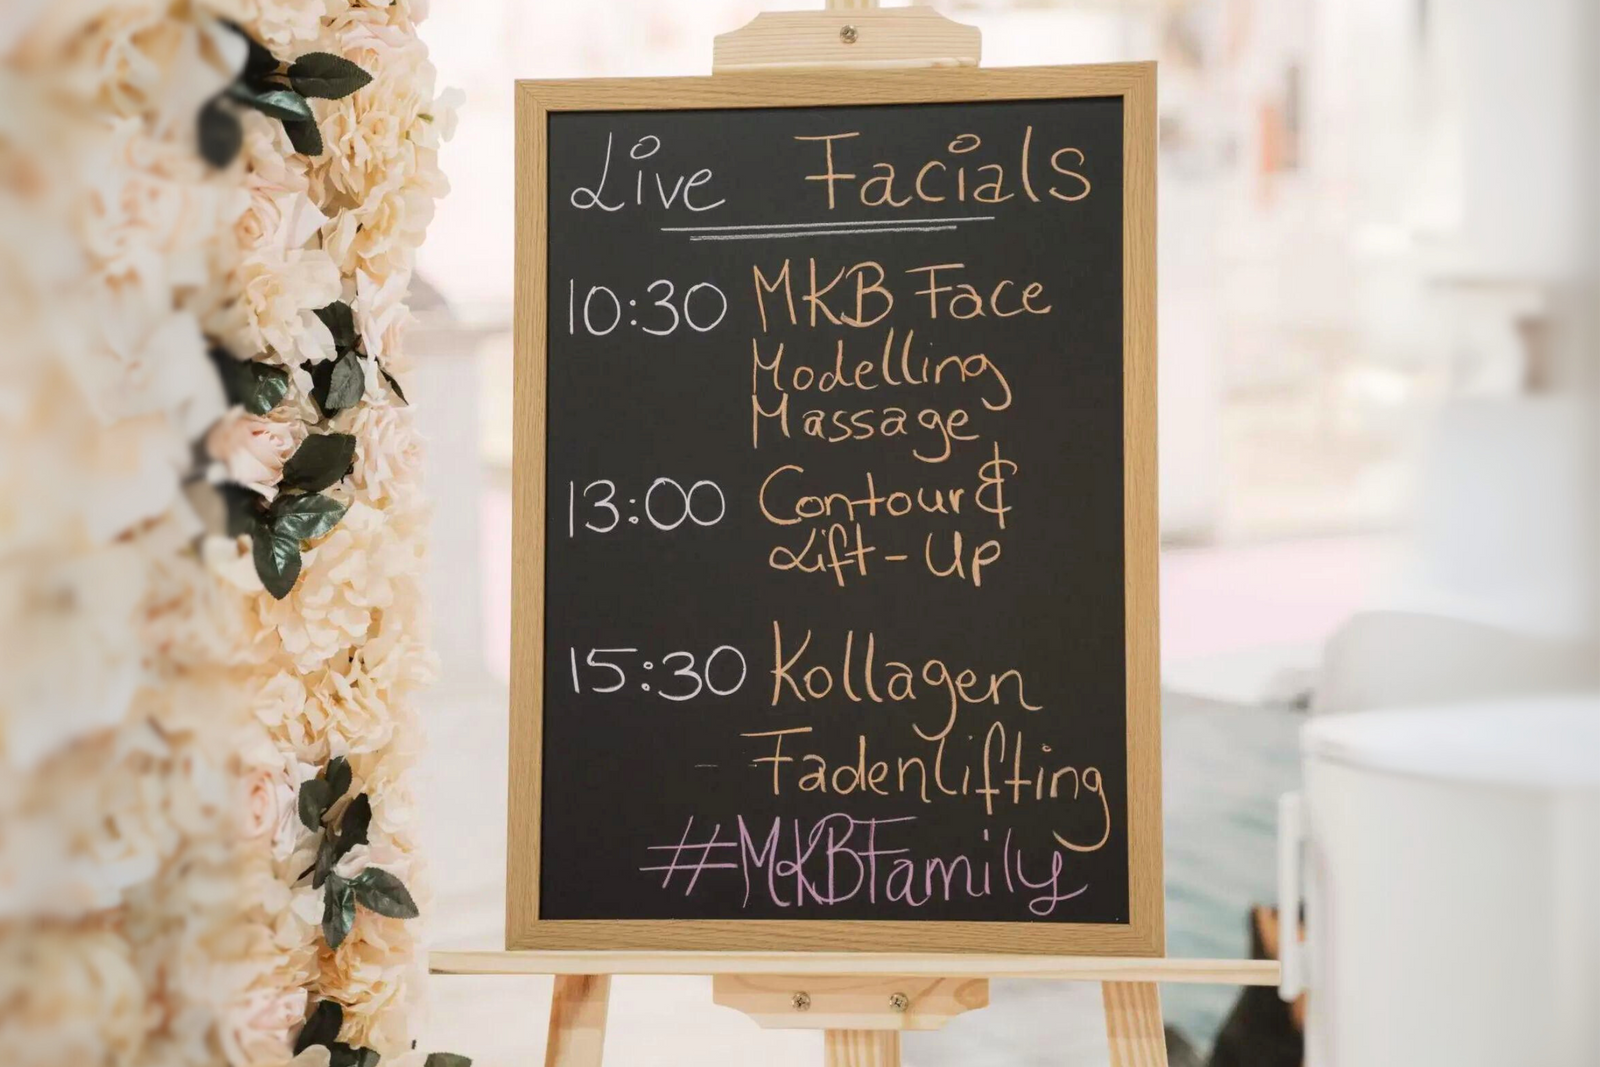 Live Facials
10:30 MKB Face
Modelling
Massage
13:00 Contour &
Lift-Up
15:30 Kollagen
Fadenlifting
#MKBFamily